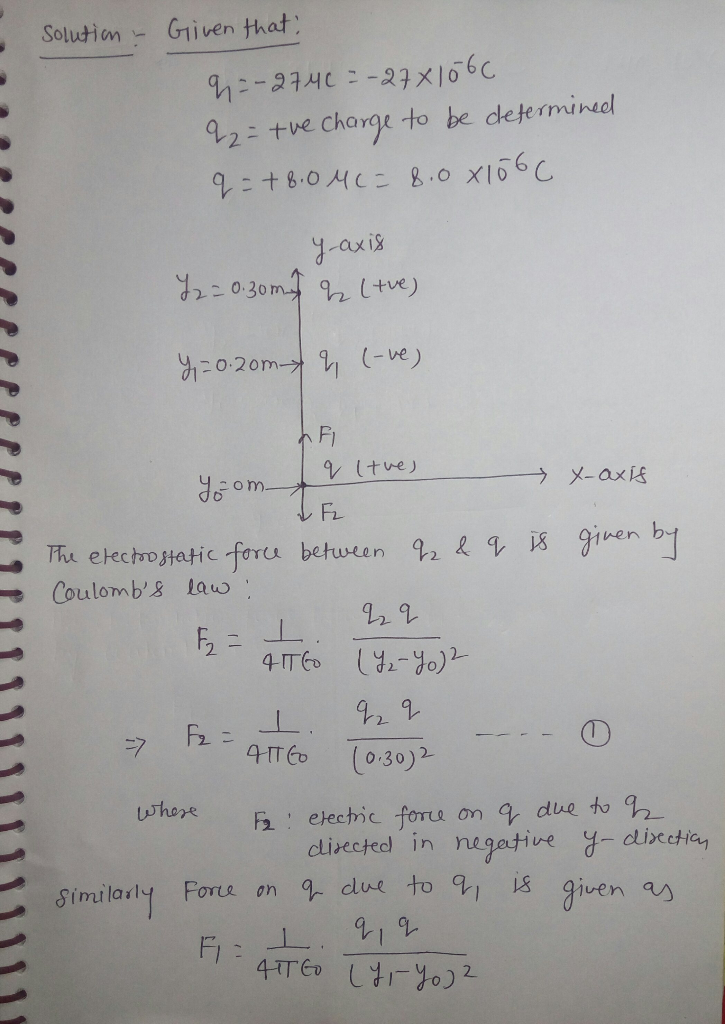 Solution :- Given that:
q₁ = -27 μC = -27 × 10⁻⁶ C
q₂ = +ve charge to be determined
q = +8.0 μC = 8.0 × 10⁻⁶ C
y-axis
y₂ = 0.30m → q₂ (+ve)
y₁ = 0.20m → q₁ (-ve)
F₁
q (+ve)
y₀ = 0m → X-axis
F₂
The electrostatic force between q₂ & q is given by
Coulomb's law :
F₂ = 1/4πε₀ . q₂ q/(y₂-y₀)²
⇒ F₂ = 1/4πε₀ . q₂ q/(0.30)² ---- ①
Where F₂ : electric force on q due to q₂
directed in negative y-direction
Similarly Force on q due to q₁ is given as
F₁ = 1/4πε₀ . q₁ q/(y₁-y₀)²